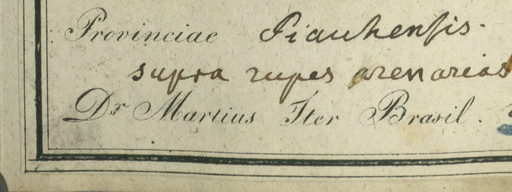 Provinciae Piauhensis.
supra rupes arenarias
Dr Martius Iter Brasil.